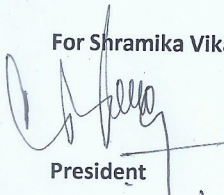 For Shramika Vika
President